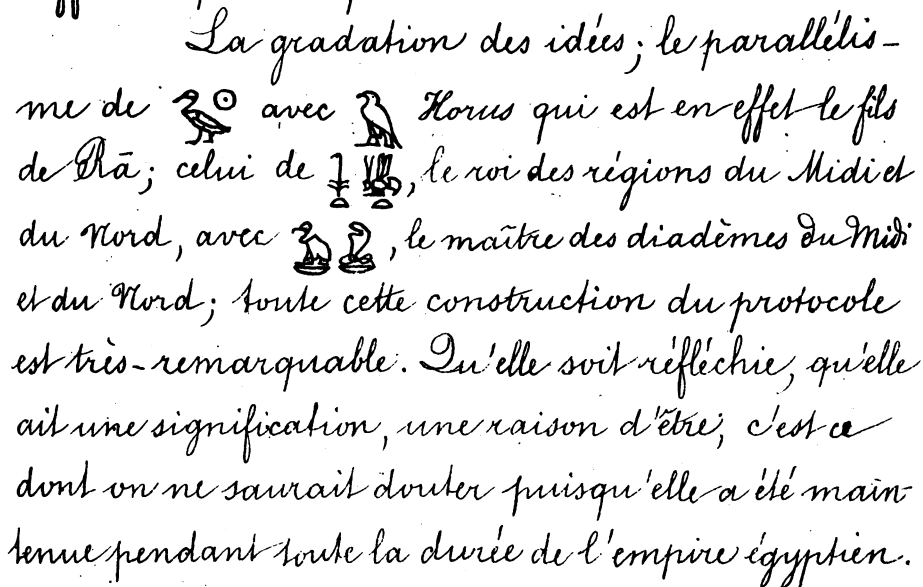 La gradation des idées; le parallélis-
me de 𓅭𓇳 avec 𓅃 Horus qui est en effet le fils
de Rā; celui de 𓇓𓏏𓆤𓏏, le roi des régions du Midi et
du Nord, avec 𓅒𓆗, le maître des diadèmes du Midi
et du Nord; toute cette construction du protocole
est très-remarquable. Qu'elle soit réfléchie, qu'elle
ait une signification, une raison d'être, c'est ce
dont on ne saurait douter puisqu'elle a été main-
tenue pendant toute la durée de l'empire égyptien.